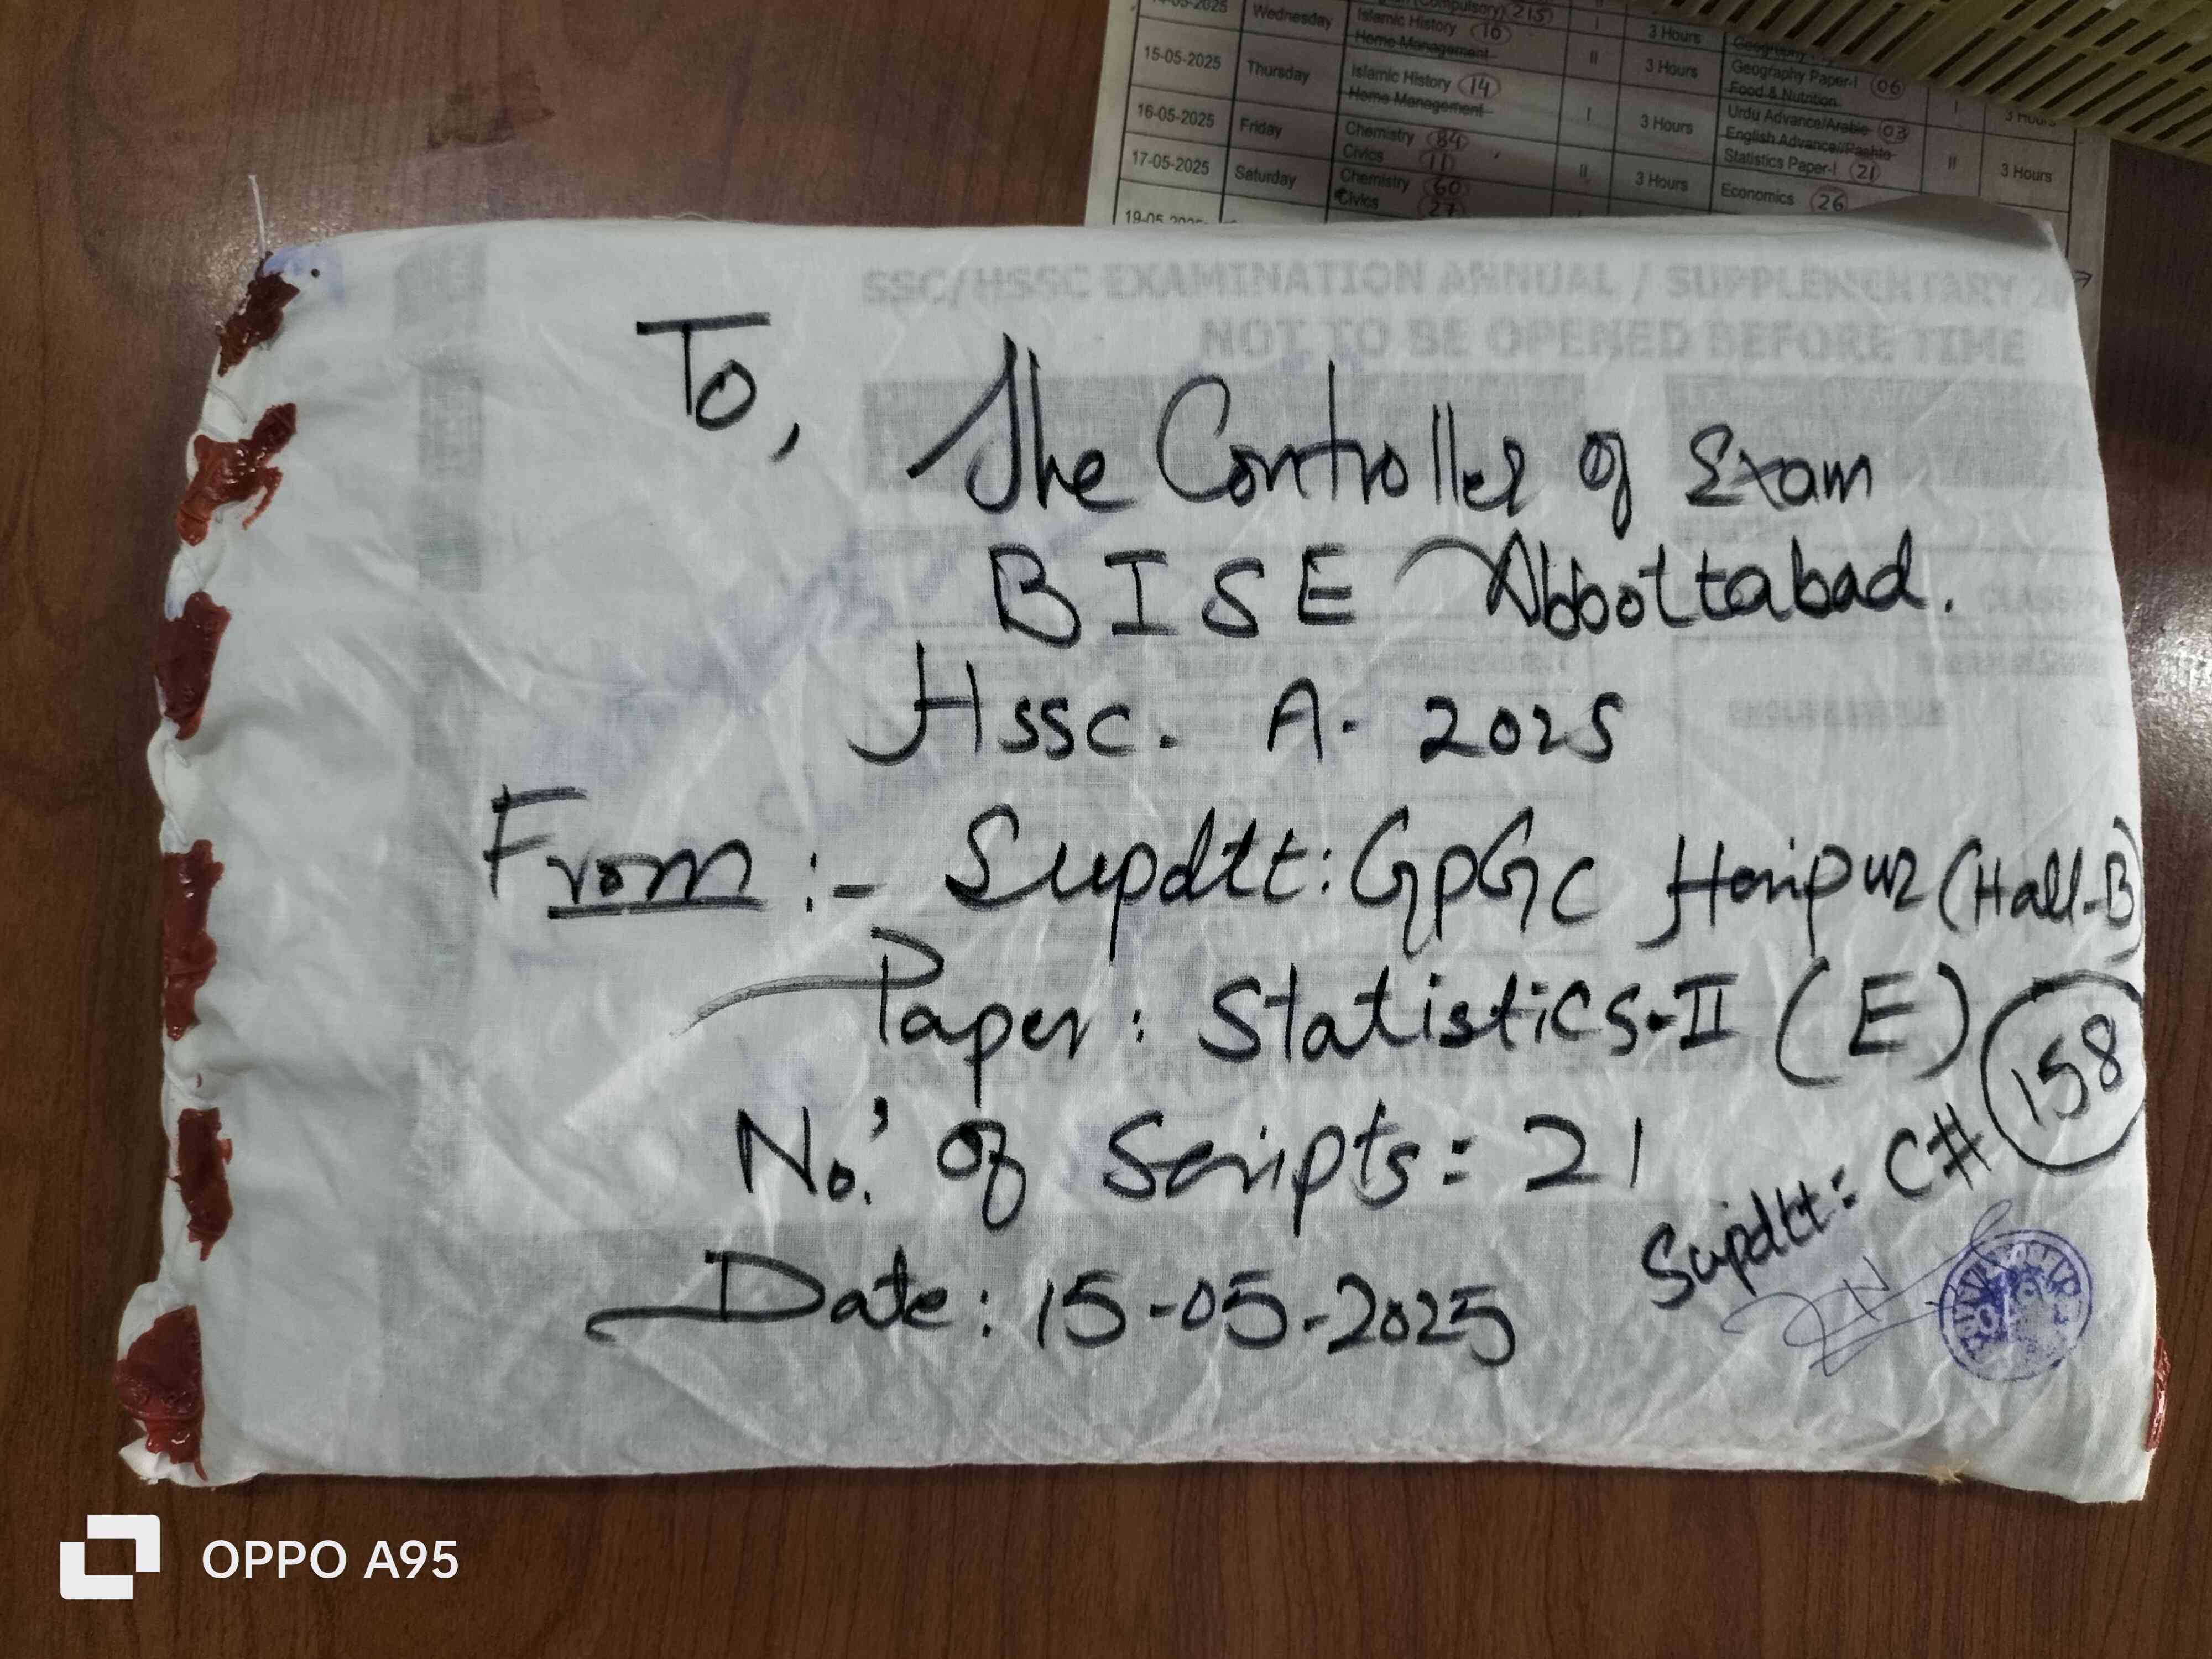 14-05-2025 Wednesday Islamic History 16 I 3 Hours
215
Home Management
15-05-2025 Thursday Islamic History 14 II 3 Hours Geography Paper-I 06 I 3 Hours
Home Management Food & Nutrition
16-05-2025 Friday Chemistry 84 I 3 Hours Urdu Advance/Arabic 03
Civics 11 English Advance/Pashto
17-05-2025 Saturday Chemistry 60 II 3 Hours Statistics Paper-I 21 II 3 Hours
Civics 27 Economics 26
19-05-2025
SSC/HSSC EXAMINATION ANNUAL / SUPPLEMENTARY
NOT TO BE OPENED BEFORE TIME
To,
The Controller of Exam
BISE Abbottabad.
Hssc. A- 2025
From :- Supdtt: GPGC Haripur (Hall-B)
Paper: Statistics-II (E)
No.' of Scripts: 21
Supdtt: C# 158
Date: 15-05-2025
OPPO A95